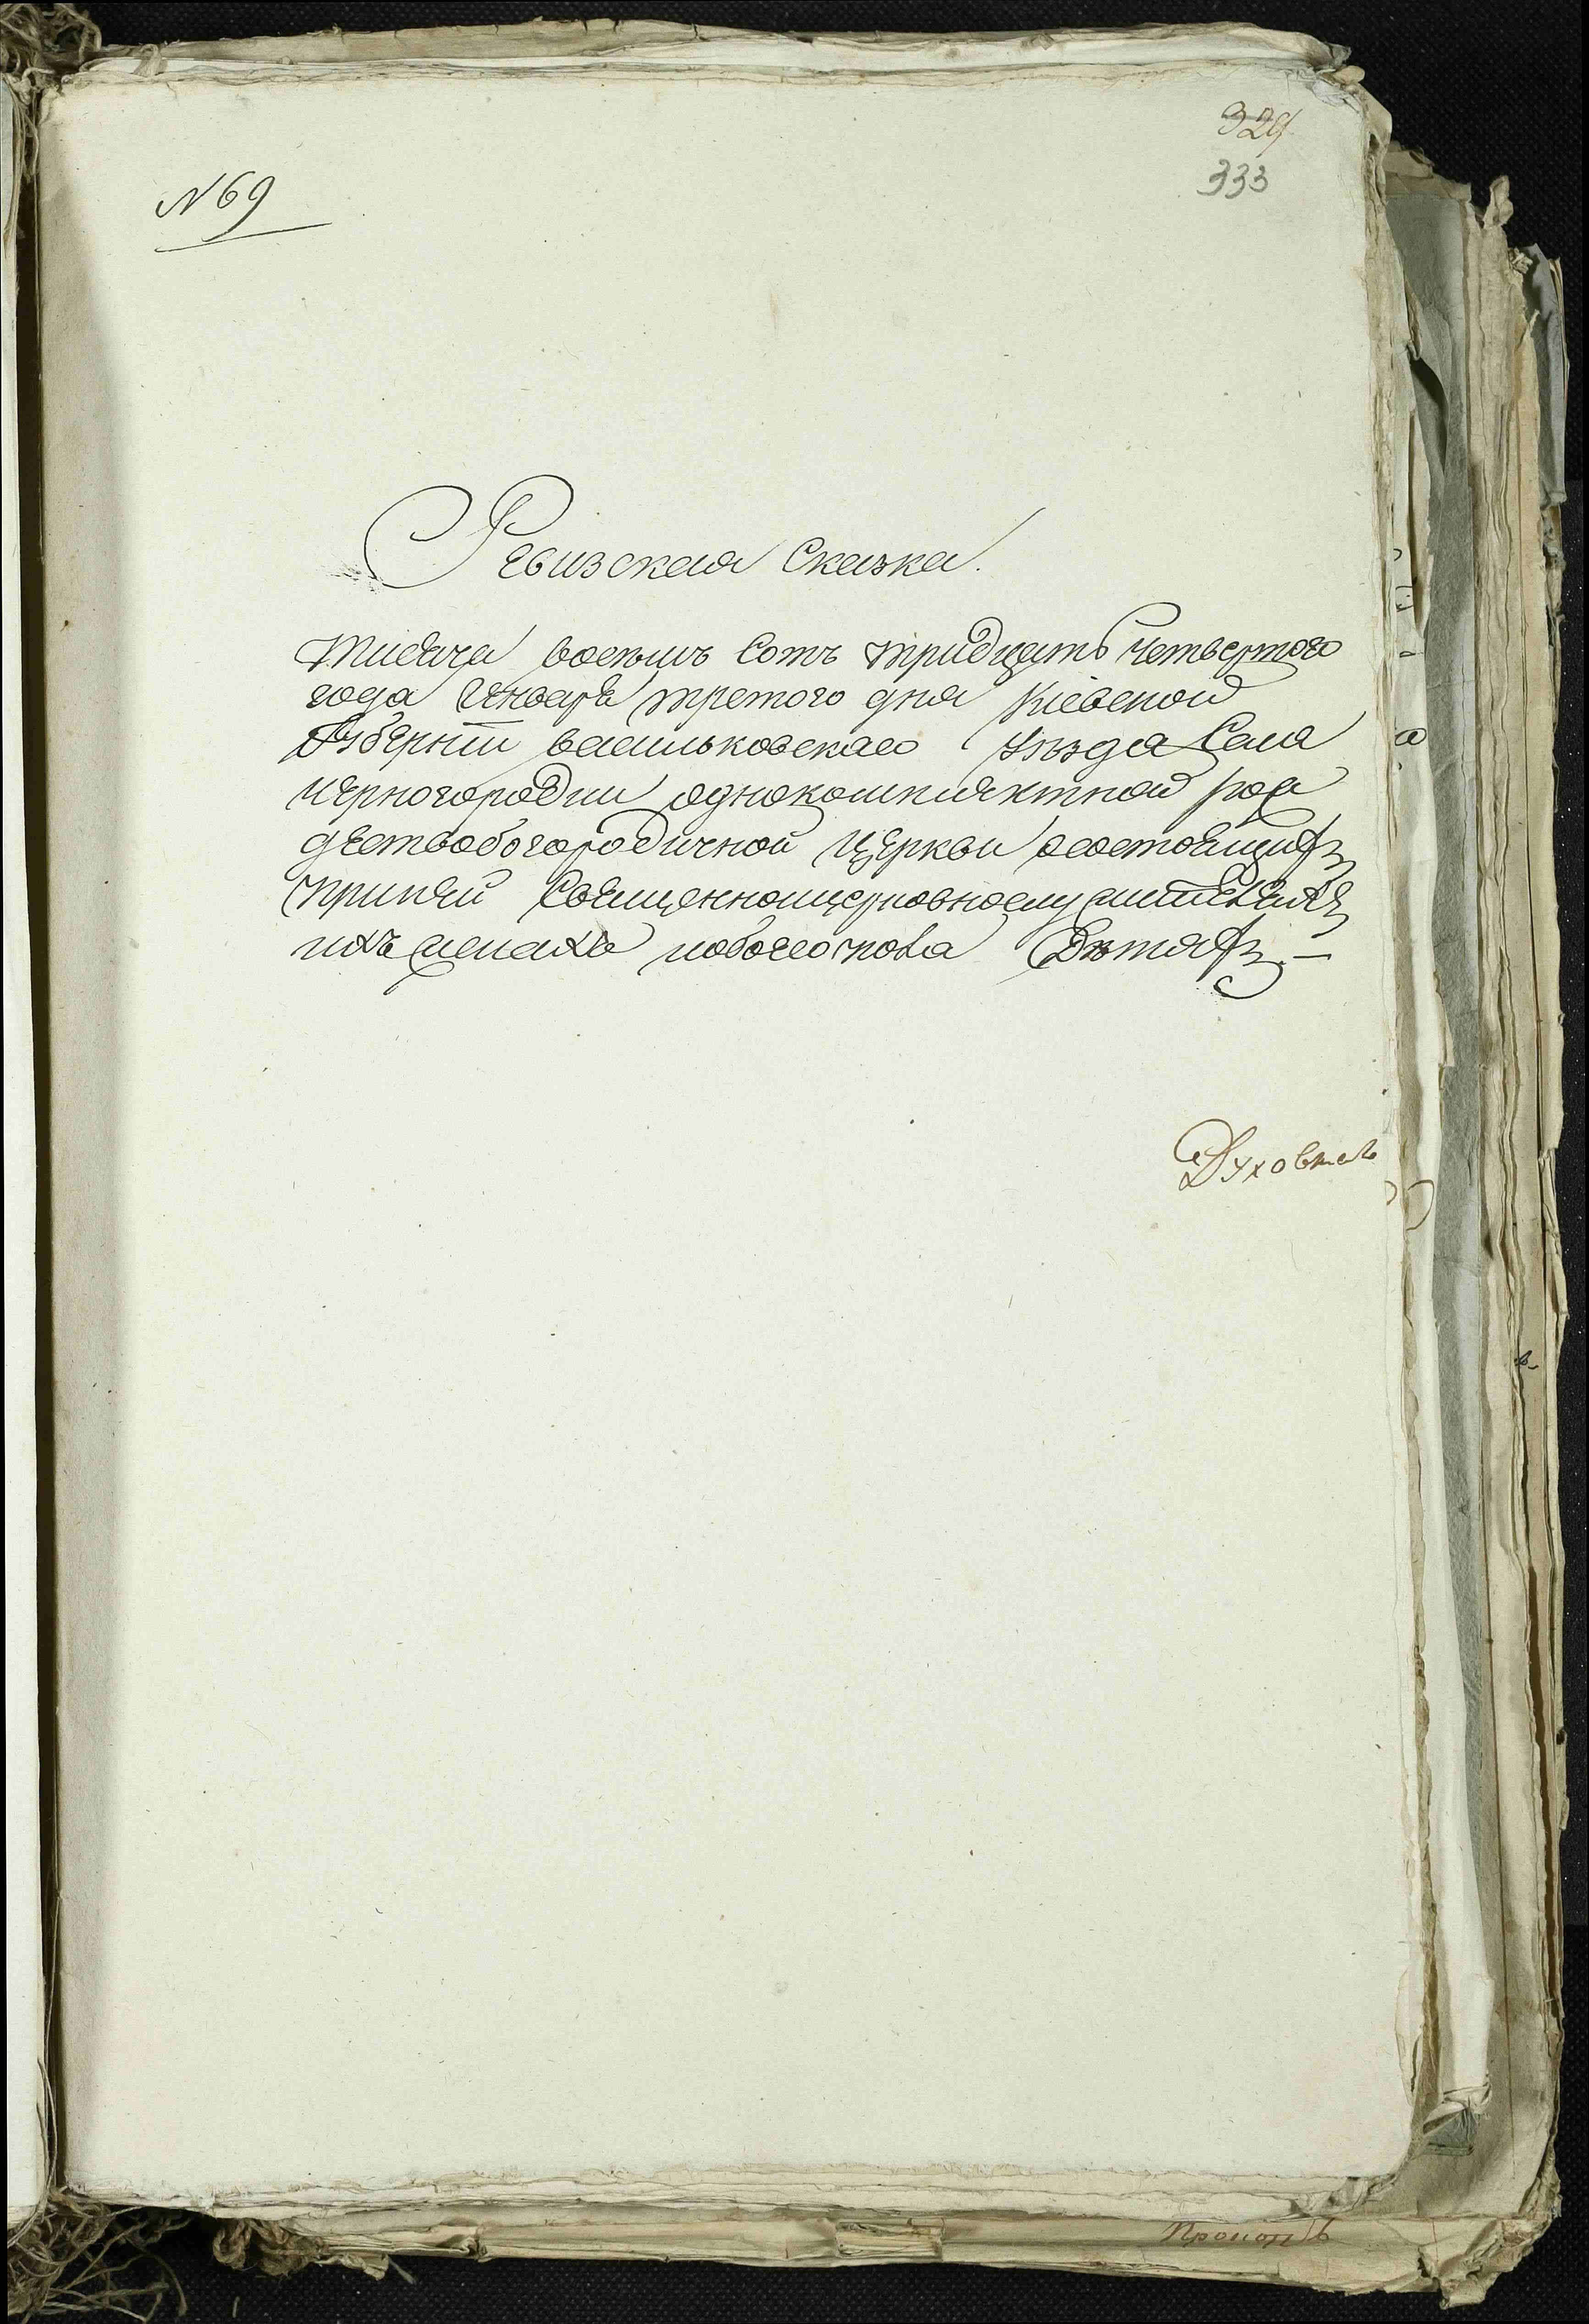 329
333
N 69
Ревизская Сказка.
Тисяча восемь Сотъ тридцать Четвертого
года Январѣ третого дня Кіевской
Губерніи васильковскаго уѣзда Села
Черногородки однокомплектной рож
дествобогородичной Церкви осостоящихъ
принѣй Священноицерковно
ихъ женахъ обоего пола Дѣтяхъ. —
Духовнаго